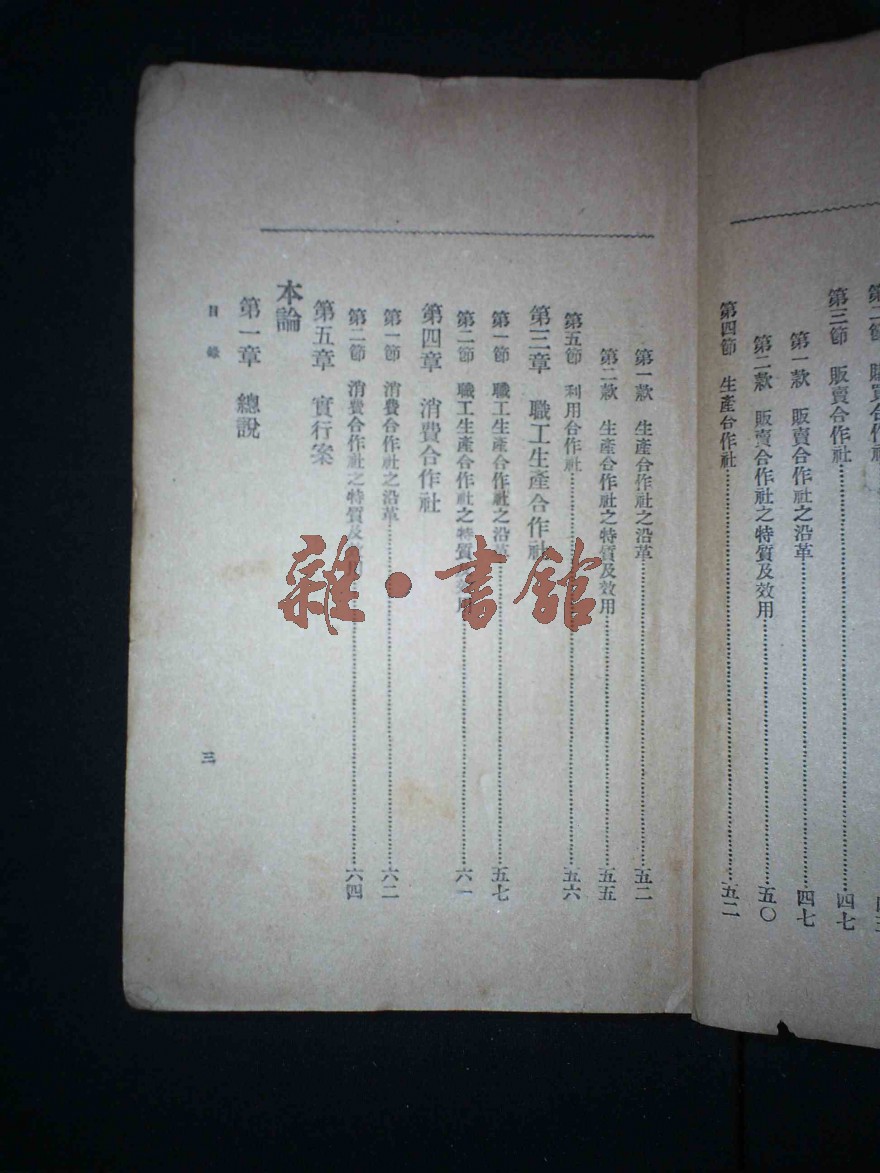 第三節 販賣合作社……四七
第一款 販賣合作社之沿革……四七
第二款 販賣合作社之特質及效用……五〇
第四節 生產合作社……五二
第一款 生產合作社之沿革……五二
第二款 生產合作社之特質及效用……五五
第五節 利用合作社……五六
第三章 職工生產合作社
第一節 職工生產合作社之沿革……五七
第二節 職工生產合作社之特質及效用……六一
第四章 消費合作社
第一節 消費合作社之沿革……六二
第二節 消費合作社之特質及效用……六四
第五章 實行案
本論
第一章 總說
目錄
三
雜·書館